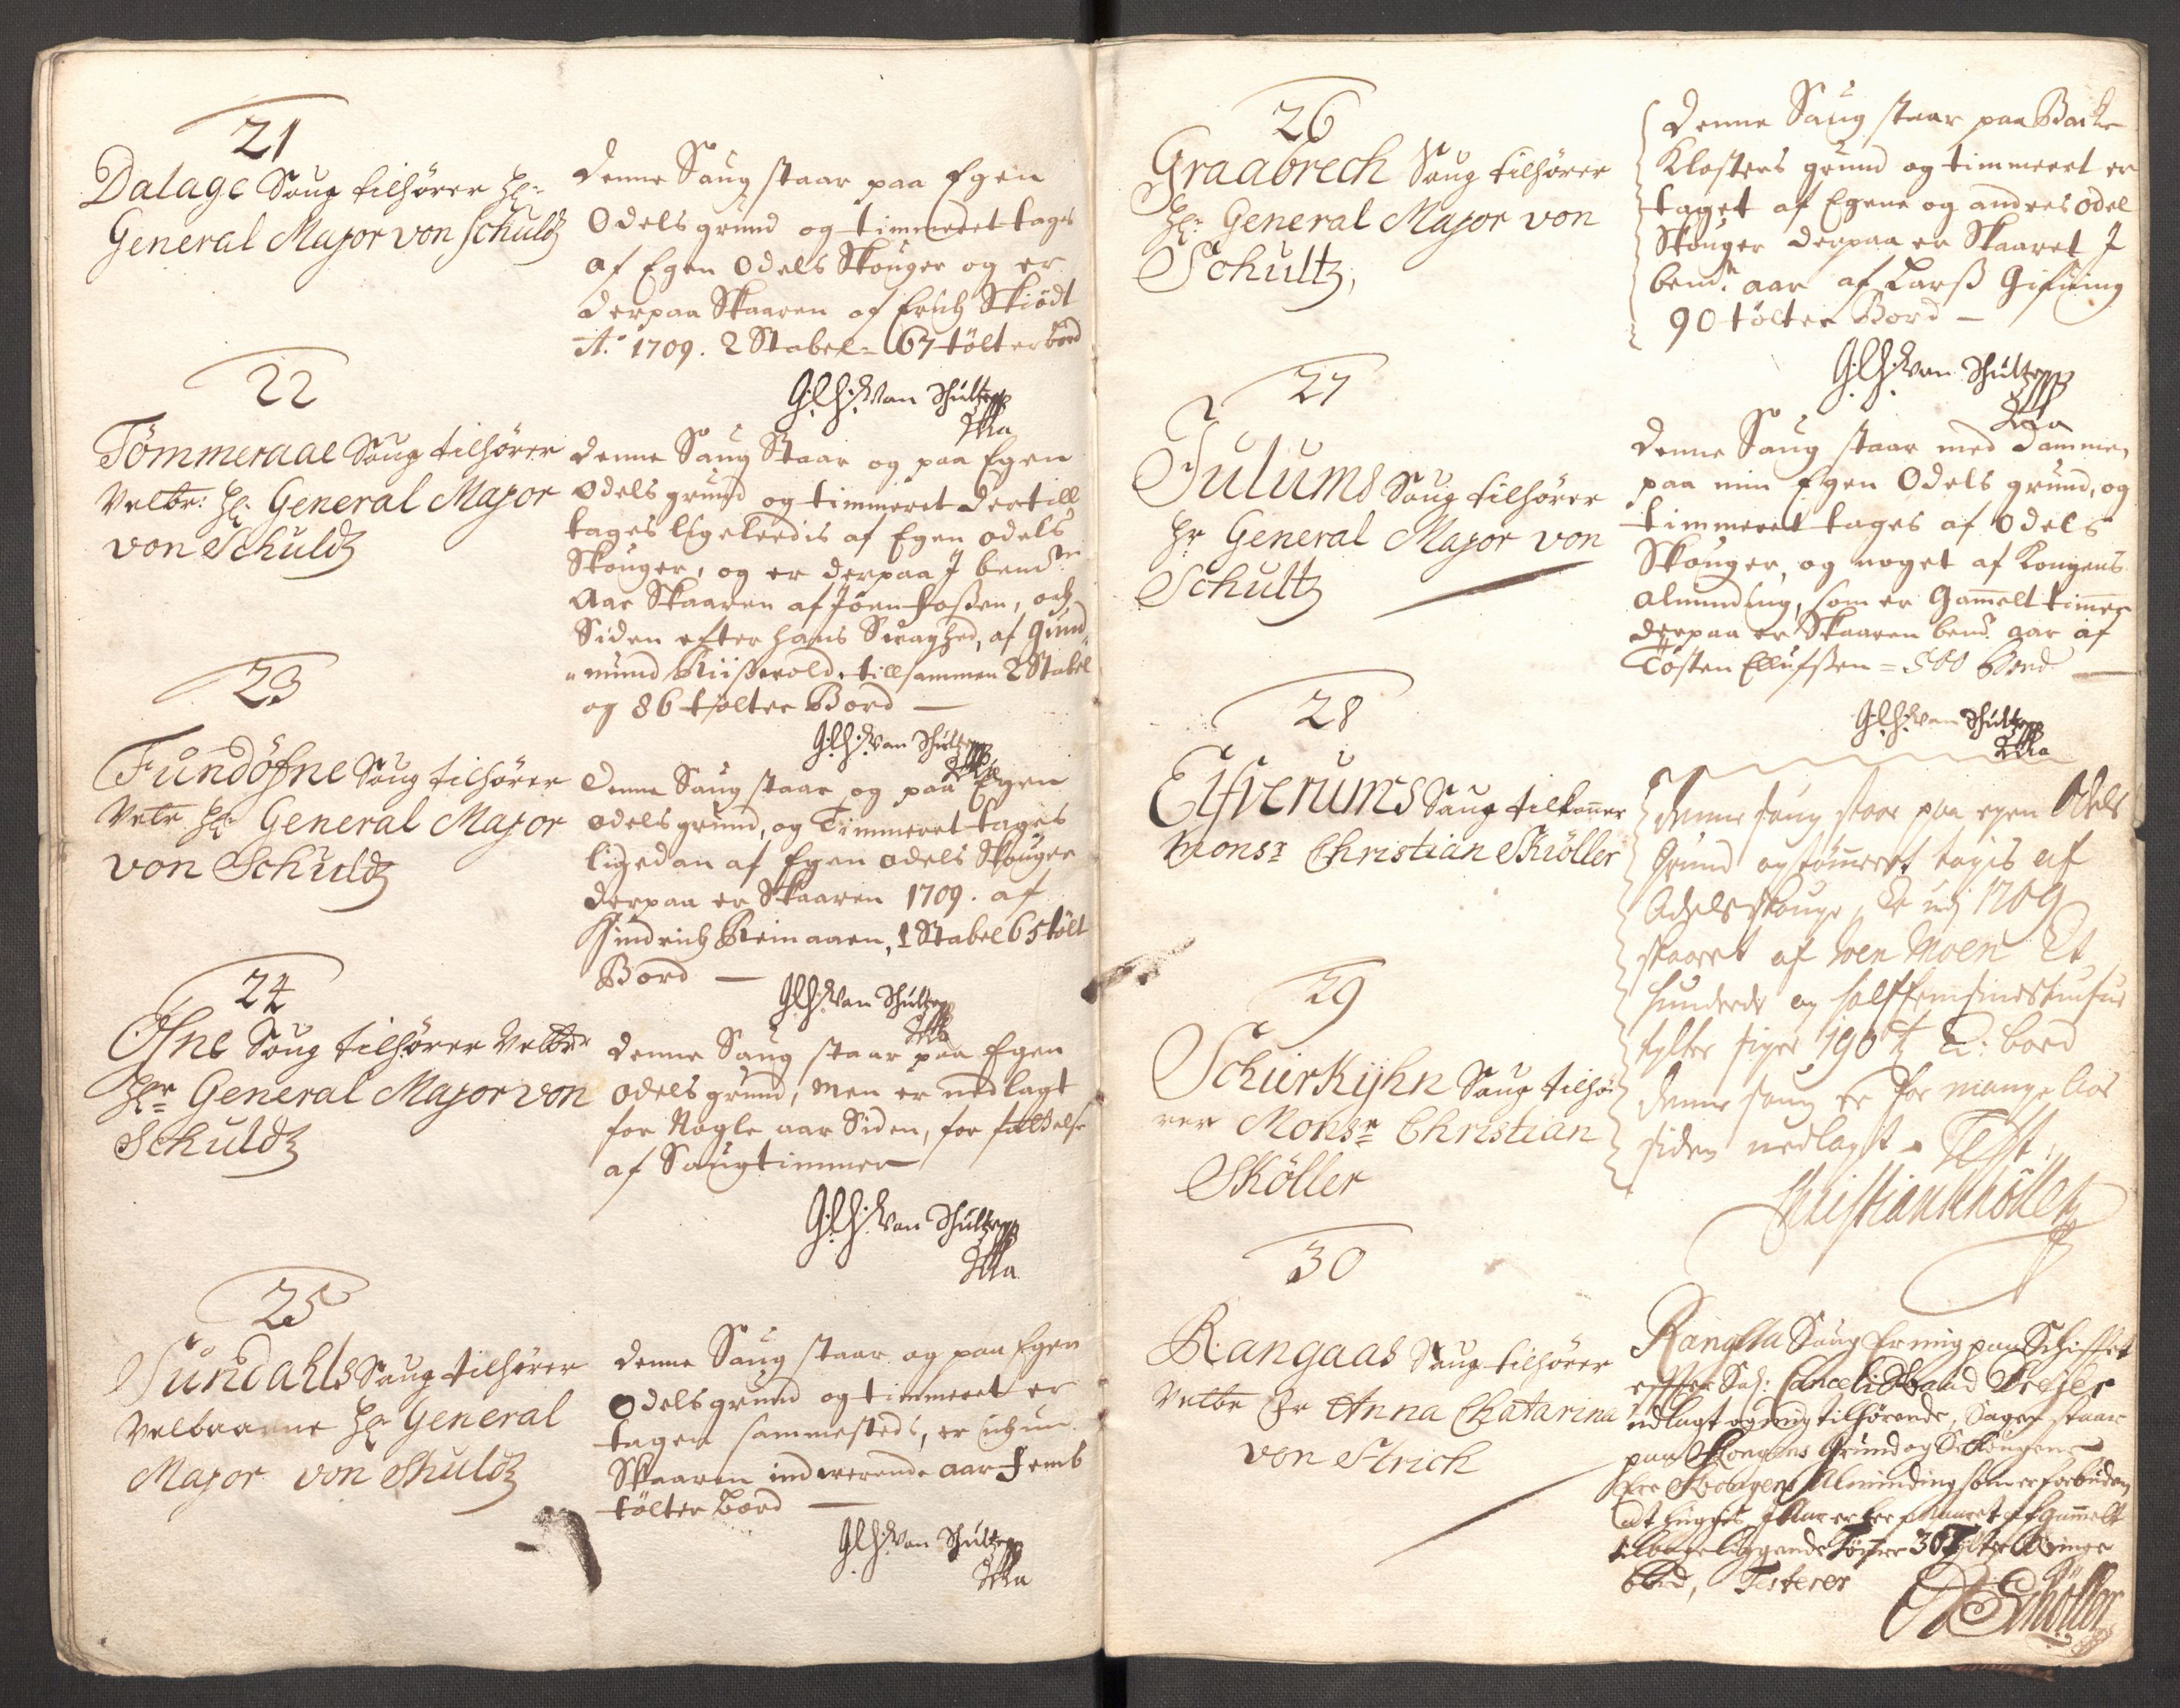 21
Dalage Saug tilhører Hr:
General Major von Schuldz
Denne Saug staar paa Egen
Odels grund og timmeret tages
af Egen Odels Skouger og er
derpaa Skaaren af Erich Skiödt
Ao 1709. 2 Stabel= 67 tölter bord
G:l:H: Von Schültz
22
Tömmeraae Saug tilhører
Velbr: Hr: General Major
von Schuldz
Denne Saug Staar og paa Egen
Odels grund og timmeret dertill
tages ligeleedis af Egen odels
Skouger, og er derpaa J bemte
Aar Skaaren af Joen, och
Siden efter hans Svaghed, af Gund=
=mund, tillsammen 2 Stabel
og 86 tölter Bord —
G:l:H: Von Schültz
23
Fundöfne Saug tilhører
Velbr Hr General Major
von Schuldz
Denne Saug staar og paa Egen
odels grund, og Timmeret tages
ligedan af Egen odels Skouger
derpaa er Skaaren 1709. af
Hindrich Reinaaen, 1 Stabel 65 tölt
Bord —
G:l:H: Von Schültz
24
Ofne Saug tilhører Velbr
Hr General Major von
Schuldz
Denne Saug staar paa Egen
odels grund, Men er nedlagt
for Nogle aar Siden, for
af Saugtimmer
G:l:H: Von Schültz
25
Sundahls Saug tilhører
Velbaarne Hr General
Major von Shuldz
Denne Saug staar og paa Egen
Odels grund og timmeret er
tagen sammesteds, er
Skaaren indeverende aar femb
tölter Bord —
G:l:H: Von Schültz
26
Graabrech Saug tilhører
Hr: General Major von
Schultz,
Denne Saug staar paa Backe
Klosters grund og timmeret er
taget af Egene og andres odel
Skouger derpaa er Skaaret J
bemte aar af Larss
90 tölter Bord —
G:l:H: Von Schültz
27
Julums Saug tilhører
Hr General Major von
Schultz
Denne Saug staar med Dammen
paa min Egen Odels grund, og
timmeret tages af Odels
Skouger, og noget af Kongens
Alminding, som er Gammelt timmer
derpaa er Skaaren bemte aar af
Tosten Ellufssen = 500 Bord —
G:l:H: Von Schültz
28
Elfverums Saug tilkommer
Monsr Christian Skiöller
denne saug staar paa egen Odels
Grund og tömmeret tages af
Odels skouge, Er udj 1709
skaaret af Joen Moen Et
hunderde og halffemsindstiufue
tylter siger 190 t bord
29
Schierkijhn Saug tilhø=
rer Monsr Christian
Sköller
denne saug er for mange Aar
siden nedlagt - Test.
Christian Schöller
30
Rangaas Saug tilhører
Velbr Fr Anna Chatarina
von Strich
Ranglla Saug Er mig paa Schifftet
effter Sal: Cancelie Raad
udlagt og mig tilhørende, Sagen staar
paa Kongens Grund og Skougen
Ere Kongens Alminding som er forbuden
adt hugges J Aar er
liggende 36 Tylter
Bord, Testerer
Schöller